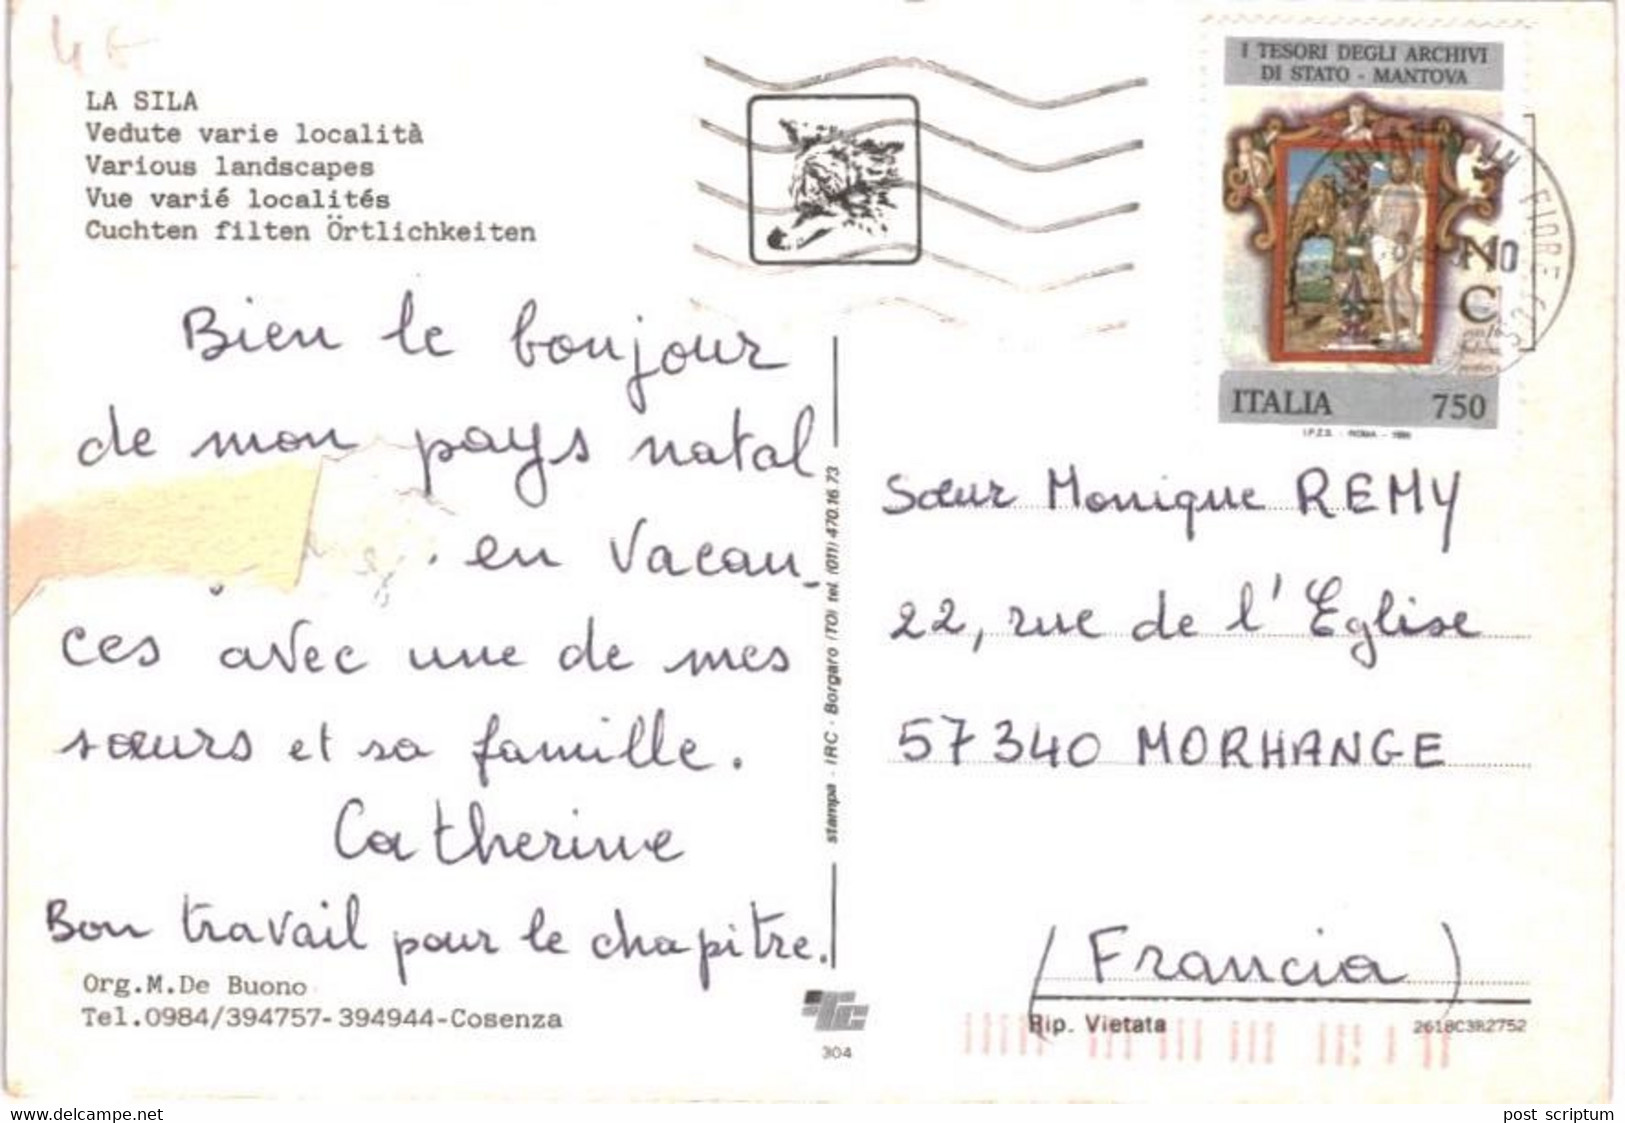 LA SILA
Vedute varie località
Various landscapes
Vue varié localités
Cuchten filten Örtlichkeiten
Bien le bonjour
de mon pays natal
en vacan-
ces avec une de mes
sœurs et sa famille.
Catherine
Bon travail pour le chapitre.
Org.M.De Buono
Tel.0984/394757-394944-Cosenza
stampa - IRC - Borgaro (TO) tel. (011) 470.16.73
304
I TESORI DEGLI ARCHIVI
DI STATO - MANTOVA
ITALIA 750
I.P.Z.S. - ROMA -
IN FIORE
Sœur Monique REMY
22, rue de l'Eglise
57340 MORHANGE
(Francia)
Rip. Vietata
2618C3R2752
www.delcampe.net
post scriptum